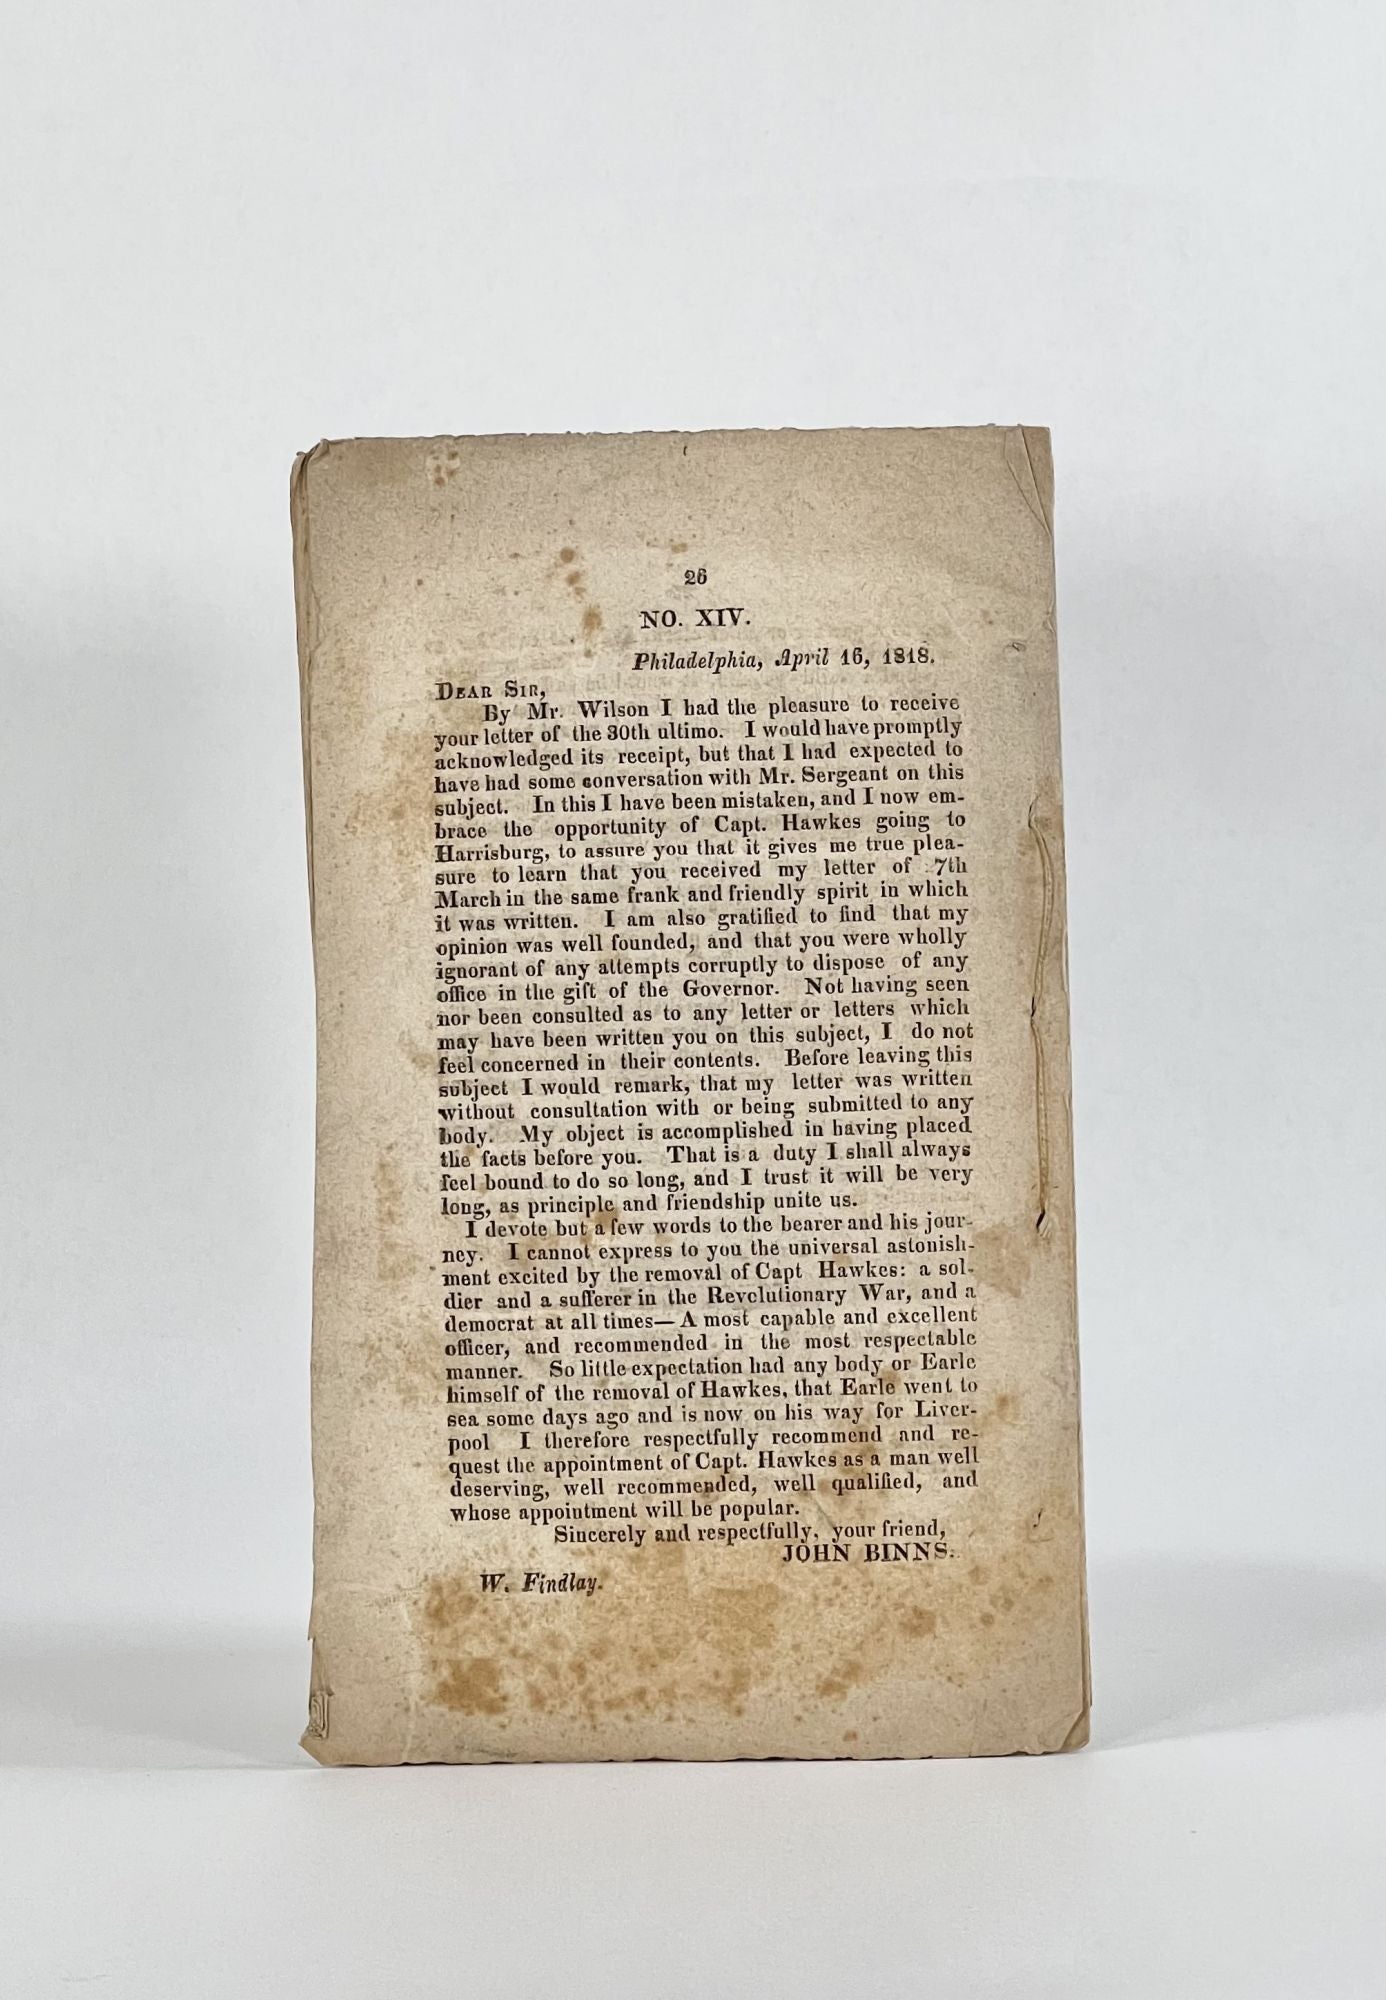 26
NO. XIV.
Philadelphia, April 16, 1818.
DEAR SIR,
By Mr. Wilson I had the pleasure to receive
your letter of the 30th ultimo. I would have promptly
acknowledged its receipt, but that I had expected to
have had some conversation with Mr. Sergeant on this
subject. In this I have been mistaken, and I now em-
brace the opportunity of Capt. Hawkes going to
Harrisburg, to assure you that it gives me true plea-
sure to learn that you received my letter of 7th
March in the same frank and friendly spirit in which
it was written. I am also gratified to find that my
opinion was well founded, and that you were wholly
ignorant of any attempts corruptly to dispose of any
office in the gift of the Governor. Not having seen
nor been consulted as to any letter or letters which
may have been written you on this subject, I do not
feel concerned in their contents. Before leaving this
subject I would remark, that my letter was written
without consultation with or being submitted to any
body. My object is accomplished in having placed
the facts before you. That is a duty I shall always
feel bound to do so long, and I trust it will be very
long, as principle and friendship unite us.
I devote but a few words to the bearer and his jour-
ney. I cannot express to you the universal astonish-
ment excited by the removal of Capt Hawkes: a sol-
dier and a sufferer in the Revolutionary War, and a
democrat at all times—A most capable and excellent
officer, and recommended in the most respectable
manner. So little expectation had any body or Earle
himself of the removal of Hawkes, that Earle went to
sea some days ago and is now on his way for Liver-
pool I therefore respectfully recommend and re-
quest the appointment of Capt. Hawkes as a man well
deserving, well recommended, well qualified, and
whose appointment will be popular.
Sincerely and respectfully, your friend,
JOHN BINNS.
W. Findlay.